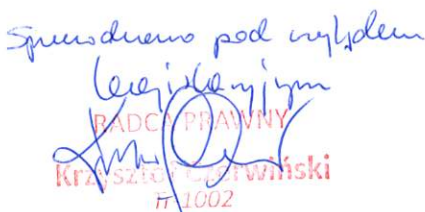 Sprawdzono pod względem
legislacyjnym
RADCA PRAWNY
Krzysztof Czerwiński
1002